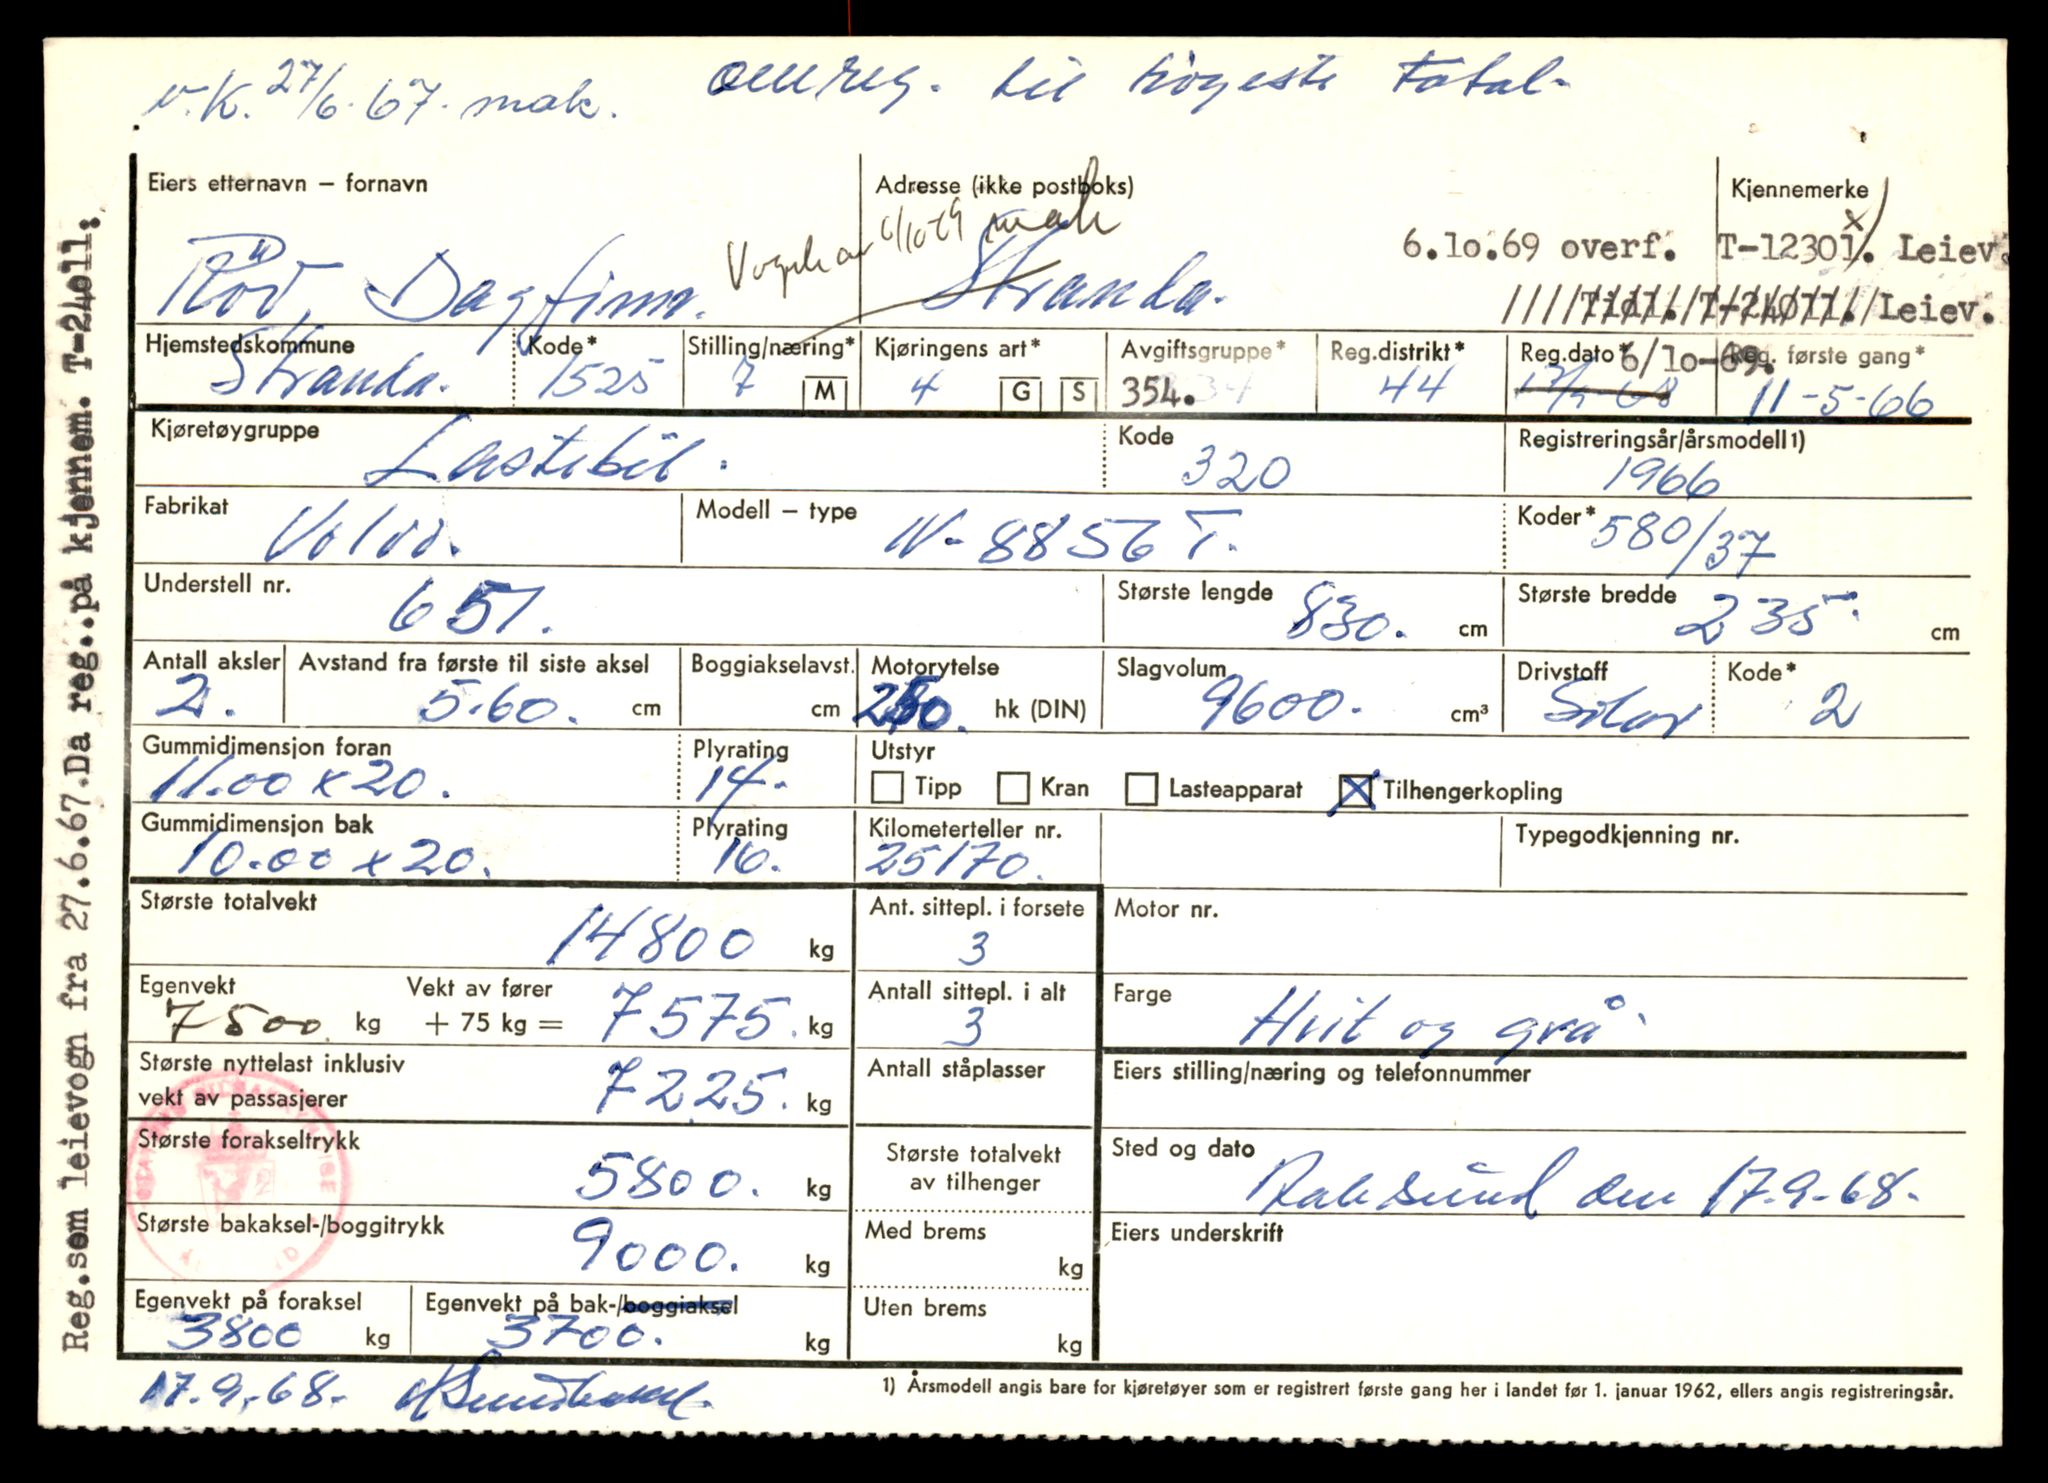 v.K. 27/6-67. mak. omreg. til høgeste total-
Eiers etternavn – fornavn
Adresse (ikke postboks)
Kjennemerke
6/10-69 mak
6.10.69 overf. T-12301. Leiev.
Rød, Dagfinn.
Stranda.
/////Tidl./T-24011./Leiev.
Hjemstedskommune Stranda.
Kode* 1525
Stilling/næring* 7 M
Kjøringens art* 4 G S
Avgiftsgruppe* 354.
Reg.distrikt* 44
Reg.dato* 6/10-69.
Reg. første gang* 11-5-66
Kjøretøygruppe Lastebil.
Kode 320
Registreringsår/årsmodell1) 1966
Fabrikat Volvo.
Modell – type N-8856 T.
Koder* 580/37
Understell nr. 651.
Største lengde 830. cm
Største bredde 235. cm
Antall aksler 2.
Avstand fra første til siste aksel 5.60. cm
Boggiakselavst. cm
Motorytelse hk (DIN)
Slagvolum 9600. cm³
Drivstoff Solar
Kode* 2
Gummidimensjon foran 11.00 x 20.
Plyrating 14.
Utstyr
Tipp Kran Lasteapparat Tilhengerkopling
Gummidimensjon bak 10.00 x 20.
Plyrating
Kilometerteller nr. 25170.
Typegodkjenning nr.
Største totalvekt 14800 kg
Ant. sittepl. i forsete 3
Motor nr.
Egenvekt 7500 kg
Vekt av fører + 75 kg = 7575. kg
Antall sittepl. i alt 3
Farge Hvit og grå.
Største nyttelast inklusiv
vekt av passasjerer 7225. kg
Antall ståplasser
Eiers stilling/næring og telefonnummer
Største forakseltrykk 5800. kg
Største totalvekt
av tilhenger
Sted og dato den 17.9.-68.
Største bakaksel-/boggitrykk 9000. kg
Med brems kg
Eiers underskrift
Egenvekt på foraksel 3800 kg
Egenvekt på bak-/boggiaksel 3700. kg
Uten brems kg
17.9.-68.
1) Årsmodell angis bare for kjøretøyer som er registrert første gang her i landet før 1. januar 1962, ellers angis registreringsår.
Reg.som leievogn fra 27.6.67.Da reg..på kjennem. T-24011.